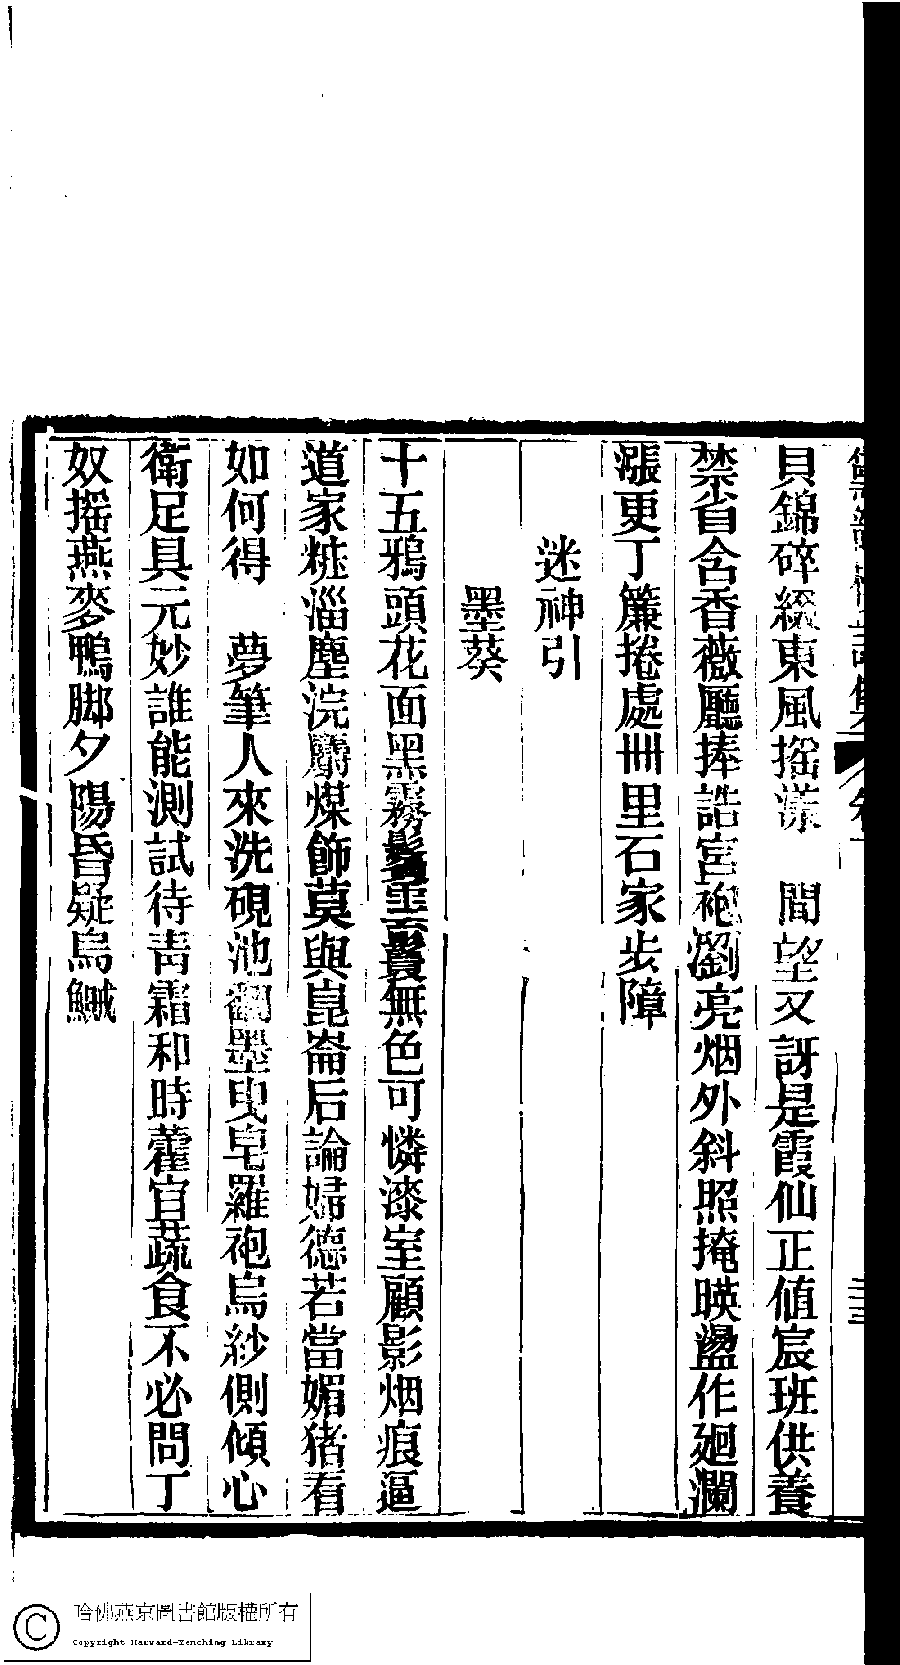 貝錦碎綴東風搖漾　間望又訝是霞仙正値宸班供養
禁省含香薇廳捧誥宮袍瀏亮烟外斜照掩暎盪作廻瀾
漲更丁簾捲處卌里石家步障
迷神引
墨葵
十五鴉頭花面黑霧鬟雲鬢無色可憐漆室顧影烟痕逼
道家粧淄塵浣麝煤飾莫與崑崙后論婦德若當媚猪看
如何得　夢筆人來洗硯池翻墨曳皂羅袍烏紗側傾心
衛足具元妙誰能測試待靑霜和時藿官蔬食不必問丁
奴搖燕麥鴨脚夕陽昏疑烏鰂
哈佛燕京圖書館版權所有
Copyright Harvard-Yenching Library